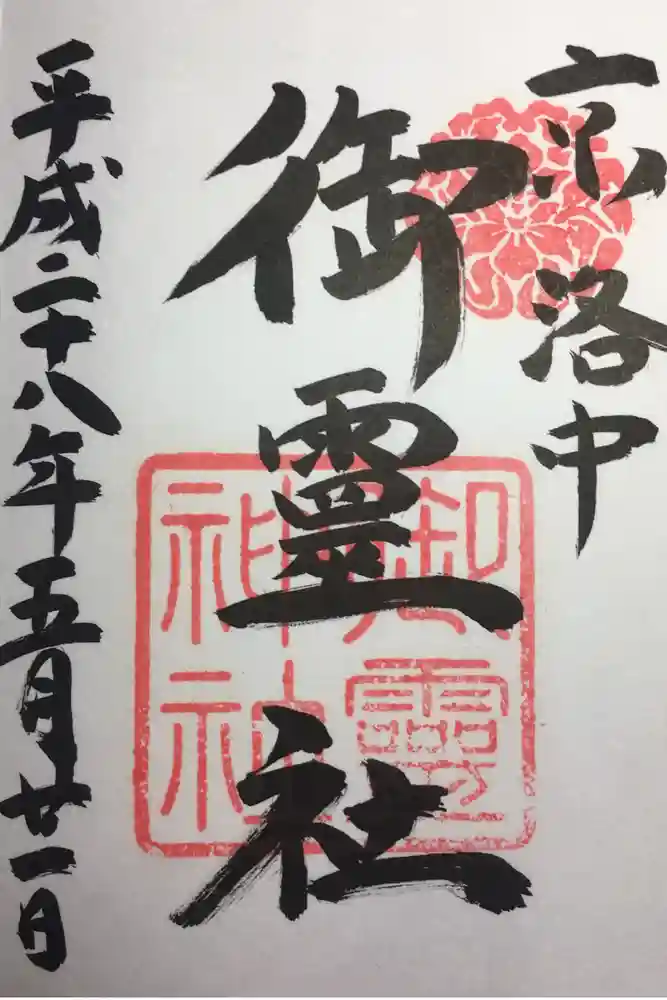 京洛中
御靈社
平成二十八年五月廿一日
御靈
神社